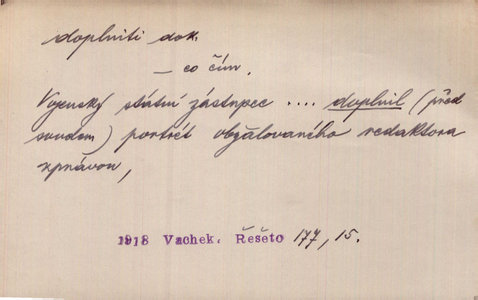 doplniti dok.
— co čím.
Vojenský státní zástupce .... doplnil (před
soudem) portrét obžalovaného redaktora
zprávou,
1918 Vachek. Řešeto 177, 15.